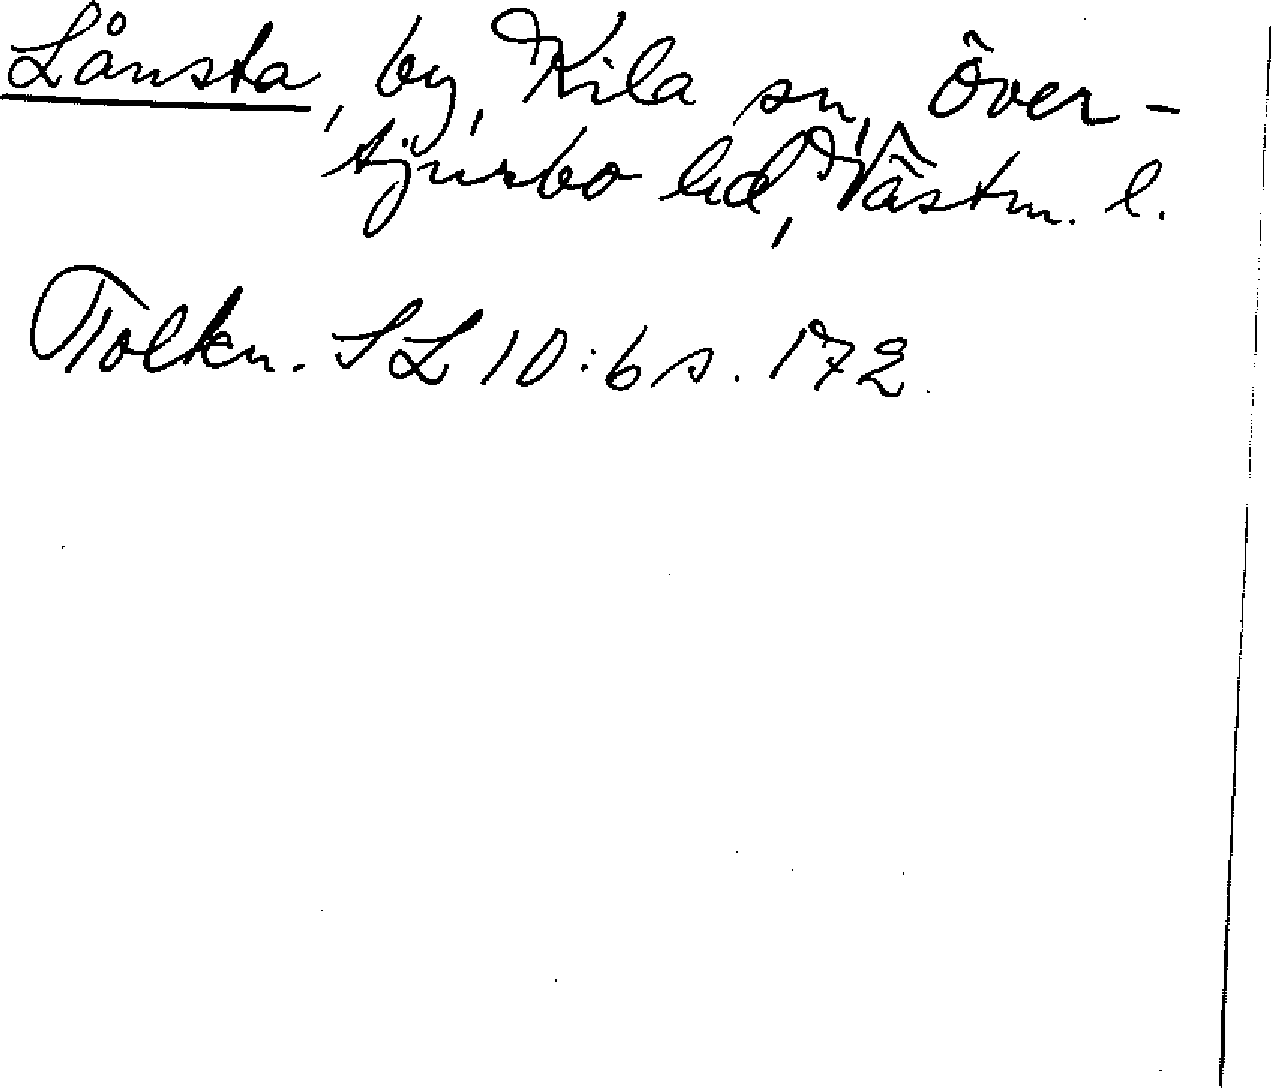 Lånsta, by, Kila sn, Över-
tjurbo hd, Västm. l.
Tolkn. SL 10:6 s. 172.